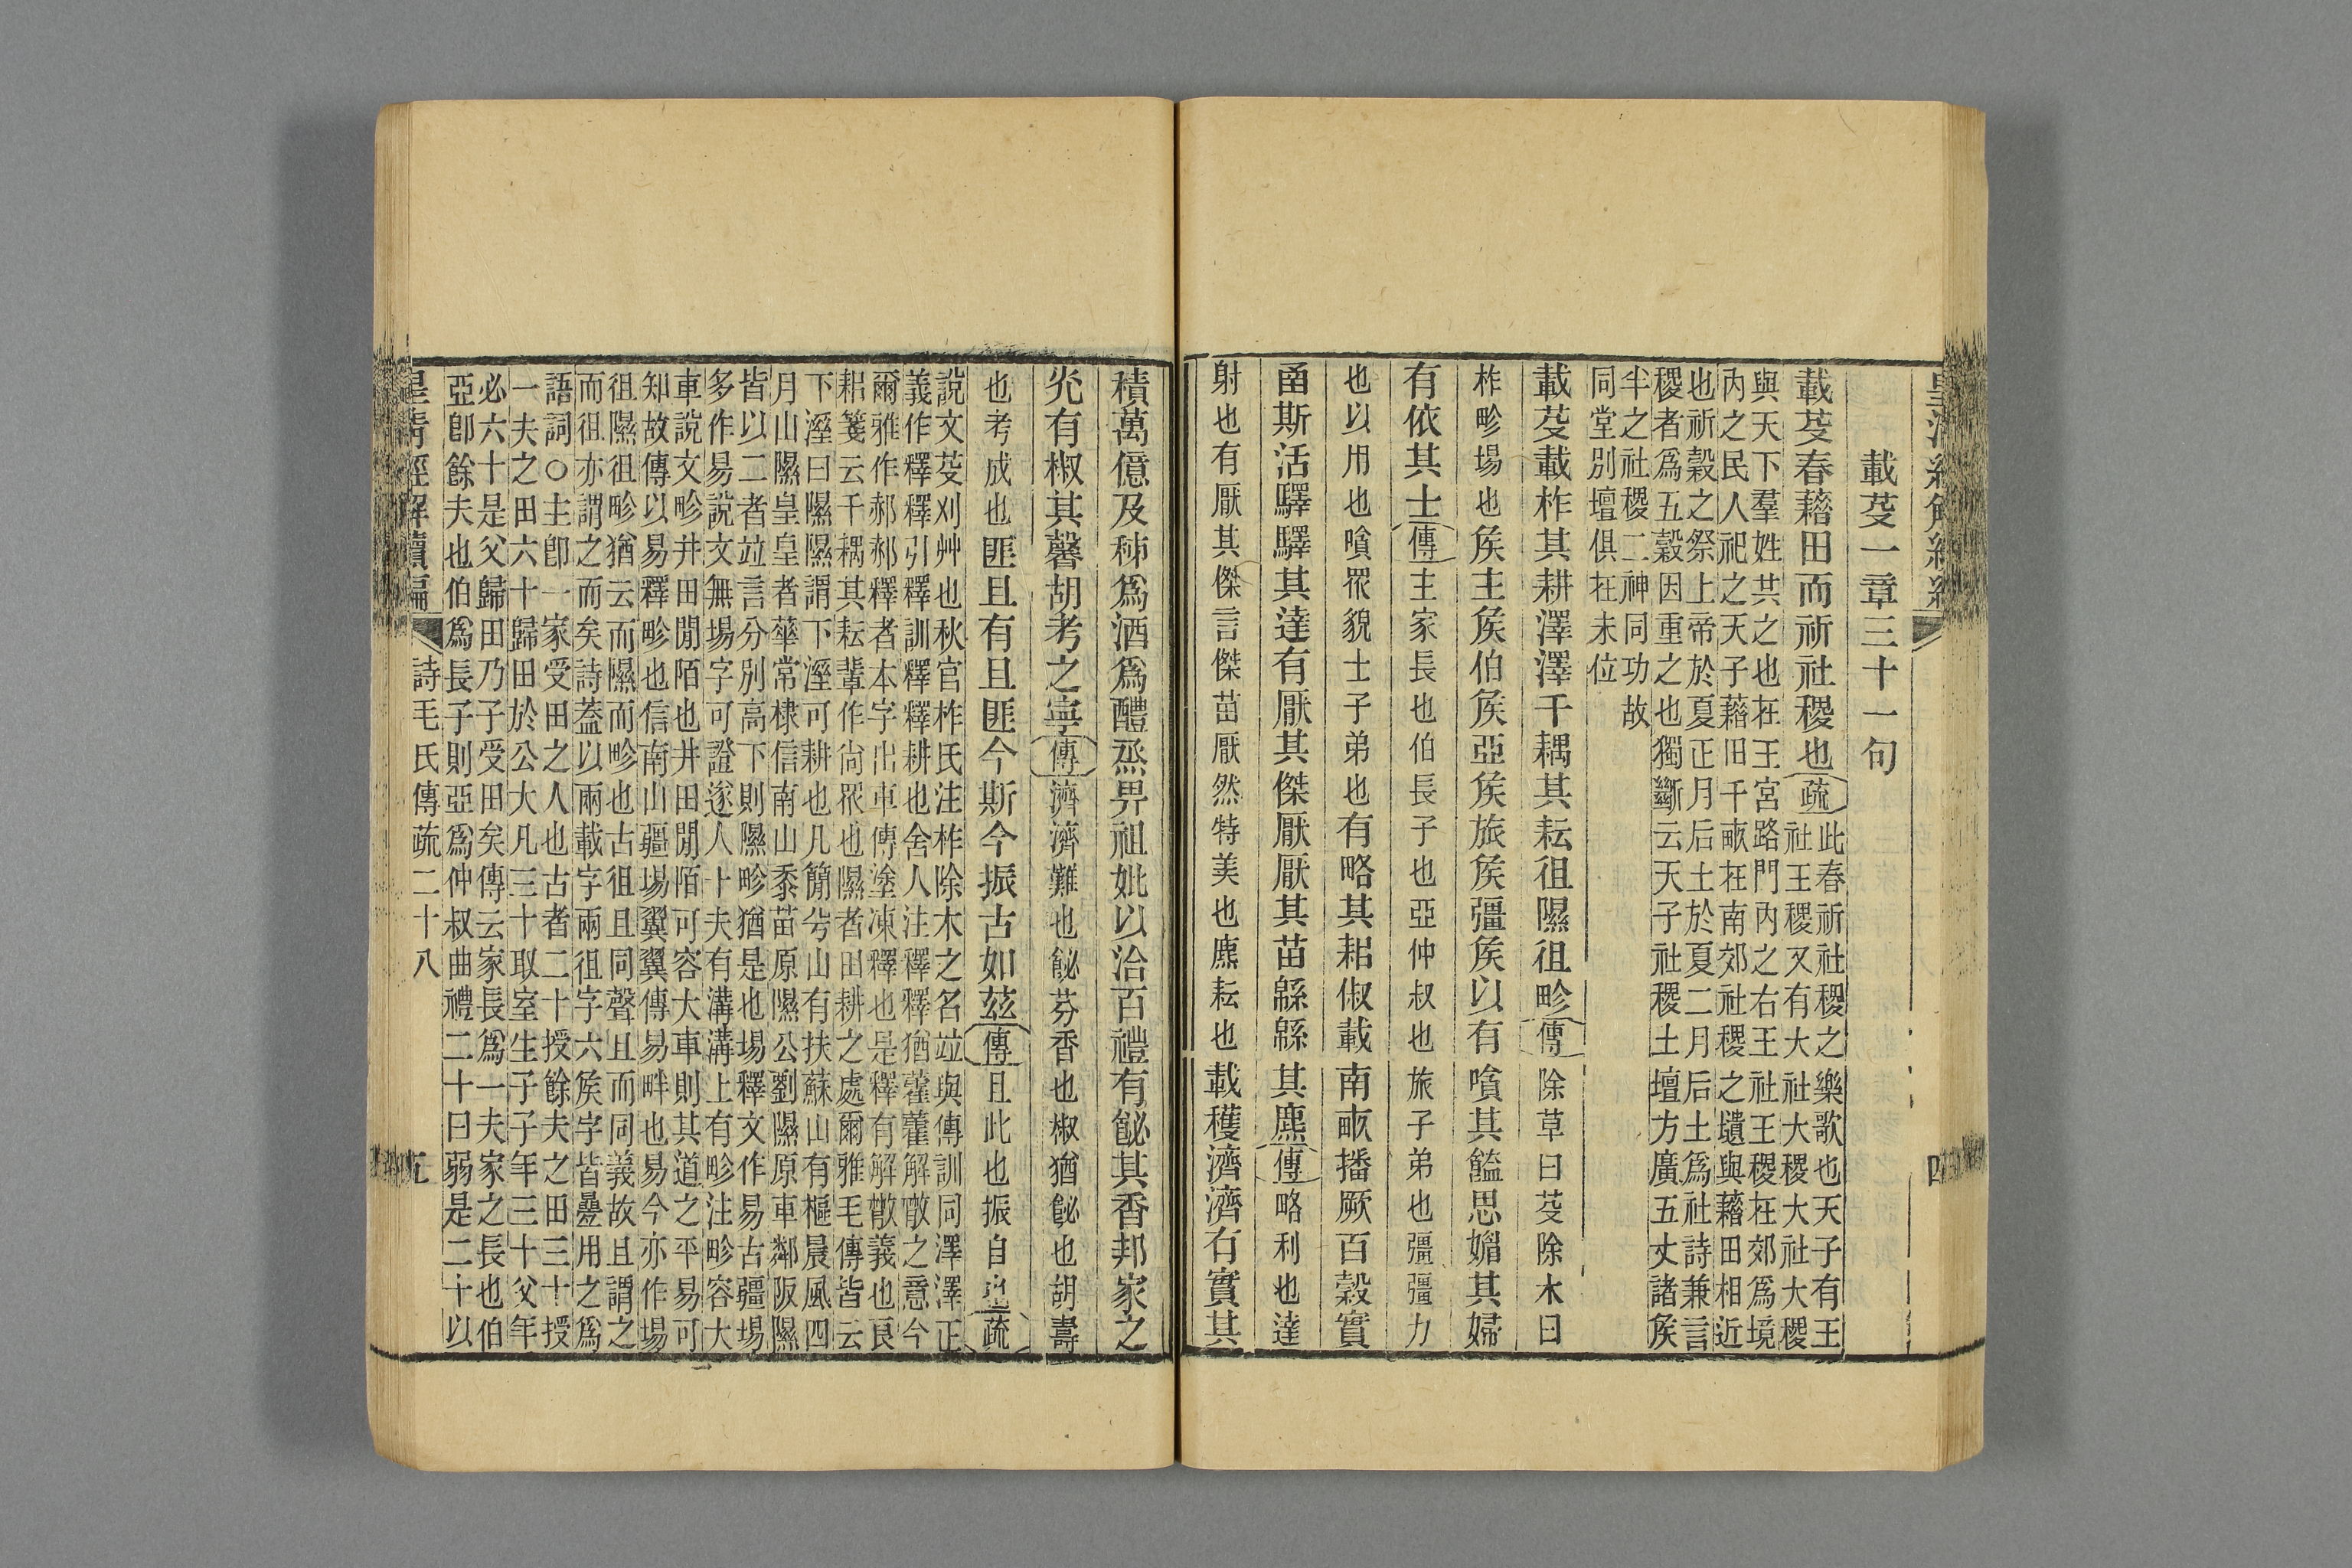 載芟一章三十一句
載芟春藉田而祈社稷也疏
此春祈社稷之樂歌也天子有王
社王稷又有大社大稷大社大稷
與天下羣姓共之也在王宮路門內之右王社王稷在郊爲境
內之民人祀之天子藉田千畝在南郊社稷之壝與藉田相近
也祈穀之祭上帝於夏正月后土於夏二月后土爲社詩兼言
稷者爲五穀因重之也獨斷云天子社稷土壇方廣五丈諸矦
半之社稷二神同功故
同堂別壇俱在未位
載芟載柞其耕澤澤千耦其耘徂隰徂畛傳除草曰芟除木曰
柞畛場也矦主矦伯矦亞矦旅矦彊矦以有嗿其饁思媚其婦
有依其士傳主家長也伯長子也亞仲叔也旅子弟也彊彊力
也以用也嗿眾貌士子弟也有略其耜俶載南畝播厥百穀實
函斯活驛驛其達有厭其傑厭厭其苗緜緜其麃傳略利也達
射也有厭其傑言傑苗厭然特美也麃耘也載穫濟濟有實其
積萬億及秭爲酒爲醴烝畀祖妣以洽百禮有飶其香邦家之
光有椒其馨胡考之寧傳濟濟難也飶芬香也椒猶飶也胡壽
也考成也匪且有且匪今斯今振古如茲傳且此也振自也疏
說文芟刈艸也秋官柞氏注柞除木之名竝與傳訓同澤澤正
義作釋釋引釋訓釋釋耕也舍人注釋釋猶藿藿解散之意今
爾雅作郝郝釋者本字出車傳塗凍釋也是釋有解散義也良
耜箋云千耦其耘輩作尚眾也隰者田耕之處爾雅毛傳皆云
下溼曰隰隰謂下溼可耕也凡簡兮山有扶蘇山有樞晨風四
月山隰皇皇者華常棣信南山黍苗原隰公劉隰原車鄰阪隰
皆以二者竝言分別高下則隰畛猶是也場釋文作易古疆場
多作易說文無場字可證遂人十夫有溝溝上有畛注畛容大
車說文畛井田閒陌也井田閒陌可容大車則其道之平易可
知故傳以易釋畛也信南山疆場翼翼傳易畔也易今亦作場
徂隰徂畛猶云而隰而畛也古徂且同聲且而同義故且謂之
而徂亦謂之而矣詩蓋以兩載字兩徂字六矦字皆疊用之爲
語詞○主卽一家受田之人也古者二十授餘夫之田三十授
一夫之田六十歸田於公大凡三十取室生子子年三十父年
必六十是父歸田乃子受田矣傳云家長爲一夫家之長也伯
亞卽餘夫也伯爲長子則亞爲仲叔曲禮二十曰弱是二十以
皇清經解續編 詩毛氏傳疏二十八 五